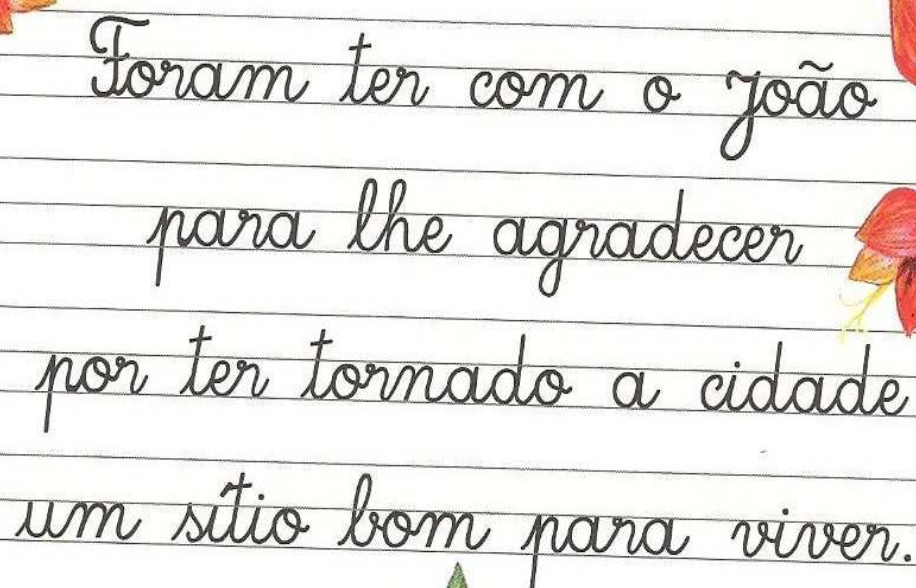 Foram ter com o João
para lhe agradecer
por ter tornado a cidade
um sítio bom para viver.